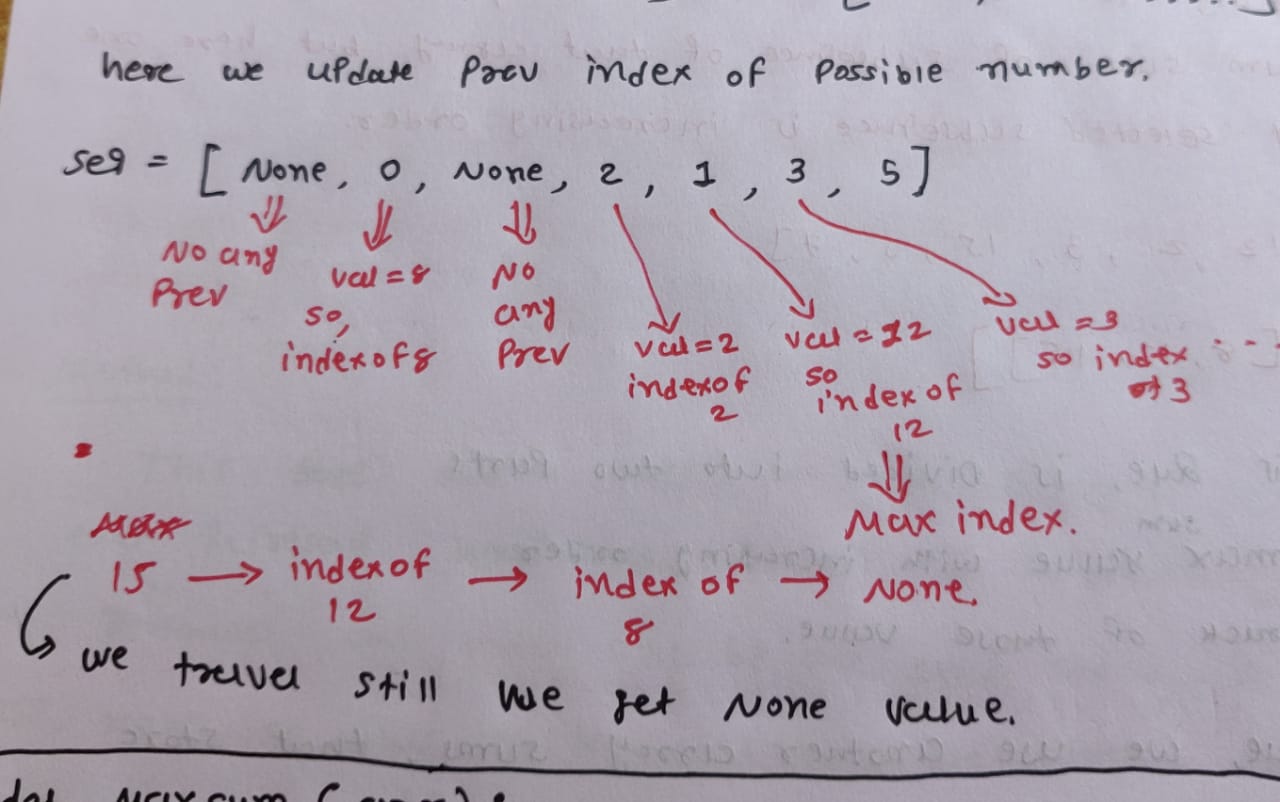 here we update Prev index of Possible number.
seq = [ None, 0, None, 2, 1, 3, 5]
No any Prev
val = 8 so, index of 8
No any Prev
val = 2 index of 2
val = 12 so index of 12
val = 3 so index of 3
Max index.
15 → index of 12 → index of 8 → None.
we travel still we get None value.